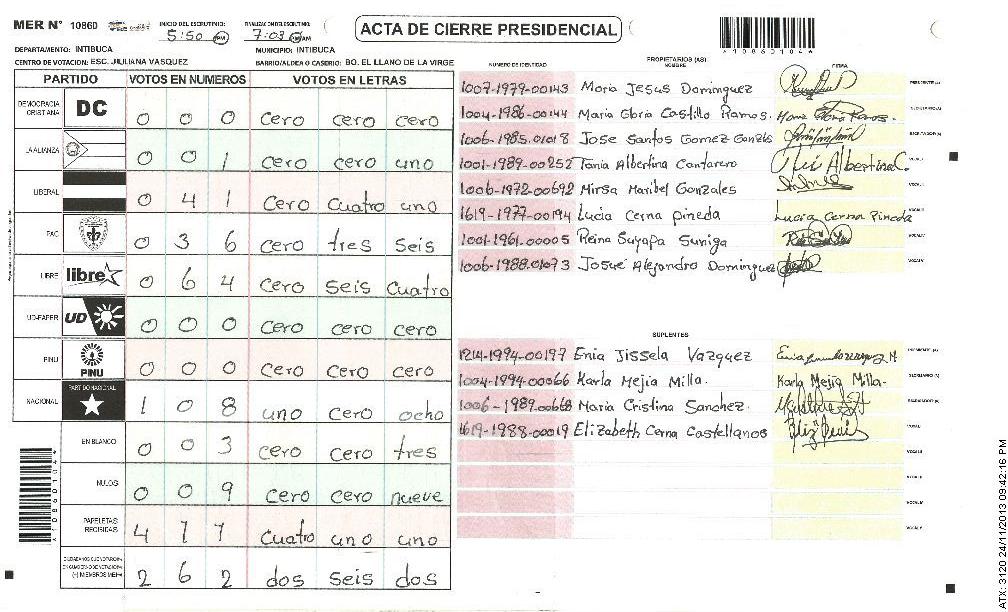 MER N° 10860
INICIO DEL ESCRUTINIO:
5:50 PM
FINALIZACION DEL ESCRUTINIO:
7:03 AM
ACTA DE CIERRE PRESIDENCIAL
*10860104*
DEPARTAMENTO: INTIBUCA
MUNICIPIO: INTIBUCA
CENTRO DE VOTACION: ESC. JIULIANA VASQUEZ
BARRIO/ALDEA O CASERIO: BO. EL LLANO DE LA VIRGE
PARTIDO VOTOS EN NUMEROS VOTOS EN LETRAS
DEMOCRACIA CRISTIANA DC 0 0 0 cero cero cero
LA ALIANZA 0 0 1 cero cero uno
LIBERAL 0 4 1 cero cuatro uno
PAC 0 3 6 cero tres seis
LIBRE libre 0 6 4 cero seis cuatro
UD-FAPER UD 0 0 0 cero cero cero
PINU PINU 0 0 0 cero cero cero
NACIONAL PARTIDO NACIONAL 1 0 8 uno cero ocho
EN BLANCO 0 0 3 cero cero tres
NULOS 0 0 9 cero cero nueve
PAPELETAS RECIBIDAS 4 1 1 cuatro uno uno
2 6 2 dos seis dos
PROPIETARIOS (AS)
NUMERO DE IDENTIDAD NOMBRE FIRMA
1007-1979-00143 Maria Jesus Dominguez PRESIDENTE (A)
1004-1986-00144 Maria Gloria Castillo Ramos. Maria Gloria Ramos. SECRETARIO (A)
1006-1985.01018 Jose Santos Gomez Gonzls ESCRUTADOR (A)
1001-1989-00252 Tania Albertina Cantarero Albertina C. VOCAL I
1006-1972-00692 Mirsa Maribel Gonzales VOCAL II
1619-1977-00194 Lucia Cerna pineda Lucia Cerna Pineda VOCAL III
1001-1961-00005 Reina Suyapa Suniga VOCAL IV
1006-1988.01073 Josué Alejandro Dominguez VOCAL V
SUPLENTES
1214-1994-00197 Enia Jissela Vazquez PRESIDENTE (A)
1004-1994-00066 Karla Mejia Milla. Karla Mejia Milla. SECRETARIO (A)
1006-1989-00668 Maria Cristina Sanchez. ESCRUTADOR (A)
1619-1988-00019 Elizabeth Cerna Castellanos VOCAL I
VOCAL II
VOCAL III
VOCAL IV
VOCAL V
*10860104*
ATX: 3120 24/11/2013 09:42:16 PM